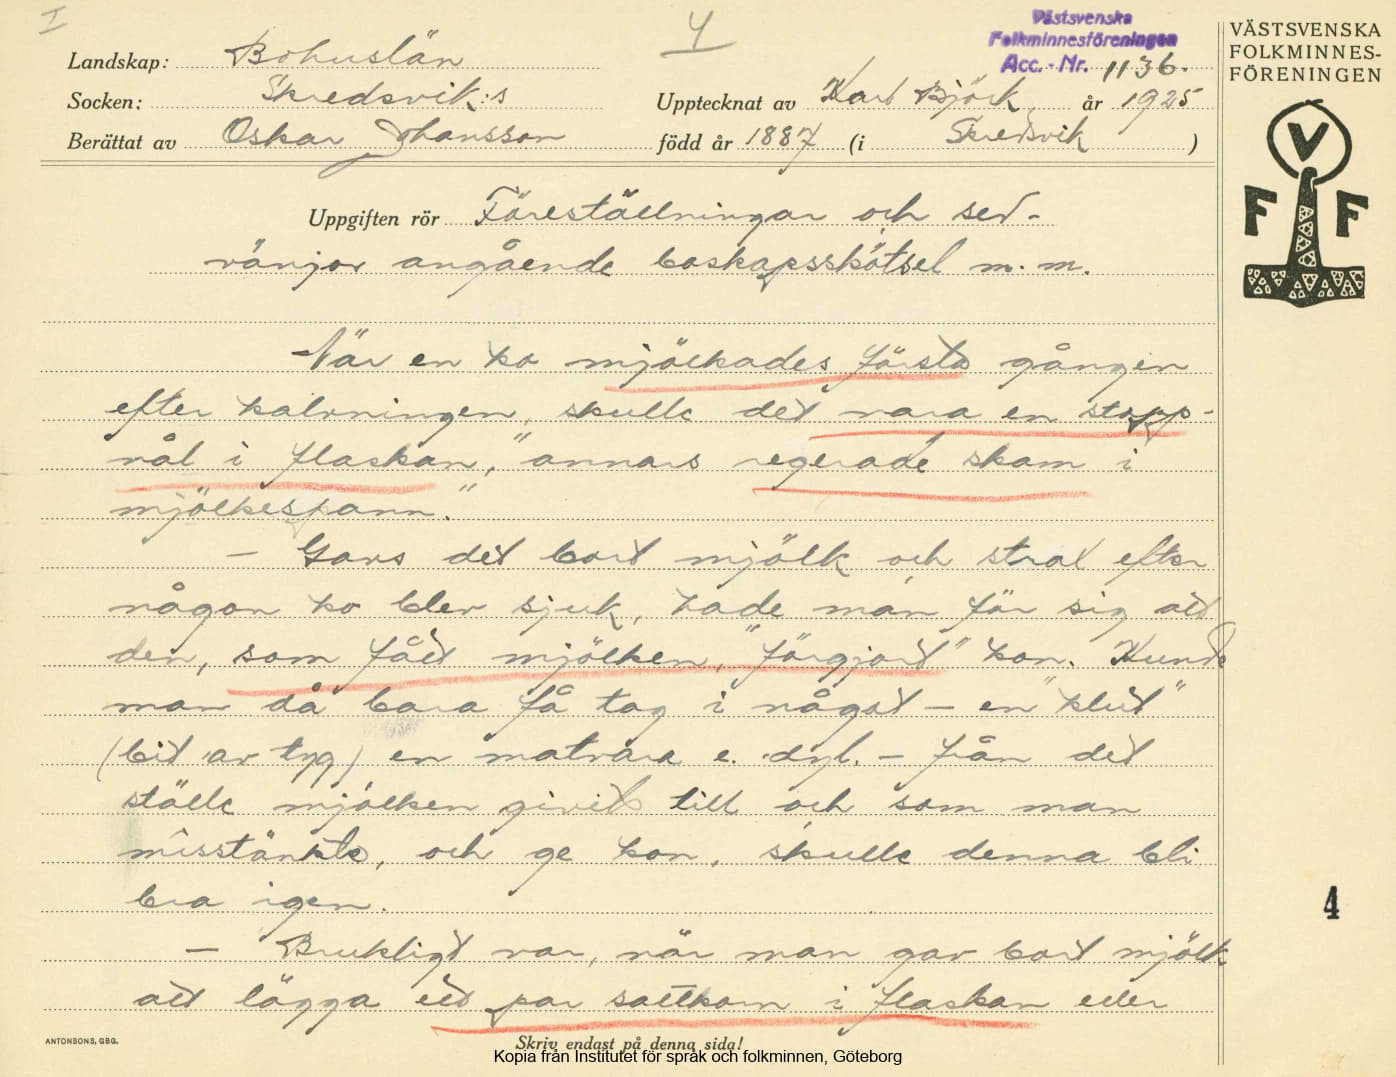 I
4
Västsvenska
Folkminnesföreningen
Acc.-Nr. 1136.
VÄSTSVENSKA
FOLKMINNES-
FÖRENINGEN
V
F F
Landskap: Bohuslän
Socken: Skredsvik:s Upptecknat av Karl Björk, år 1925
Berättat av Oskar Johansson född år 1887 (i Skredsvik )
Uppgiften rör Föreställningar och sed-
vänjor angående boskapsskötsel m. m.
När en ko mjölkades första gången
efter kalvningen, skulle det vara en stopp-
nål i flaskan, "annars regerade skam i
mjölkespann."
– Gavs det bort mjölk och strax efter
någon ko blev sjuk, hade man för sig att
den, som fått mjölken, "förgjort" kon. Kunde
man då bara få tag i något – en "klut"
(bit av tyg) en matvara e. dyl. – från det
ställe mjölken givits till och som man
misstänkte, och ge kon, skulle denna bli
bra igen.
– Brukligt var, när man gav bort mjölk
att lägga ett par saltkorn i flaskan eller
4
ANTONSONS, GBG.
Skriv endast på denna sida!
Kopia från Institutet för språk och folkminnen, Göteborg